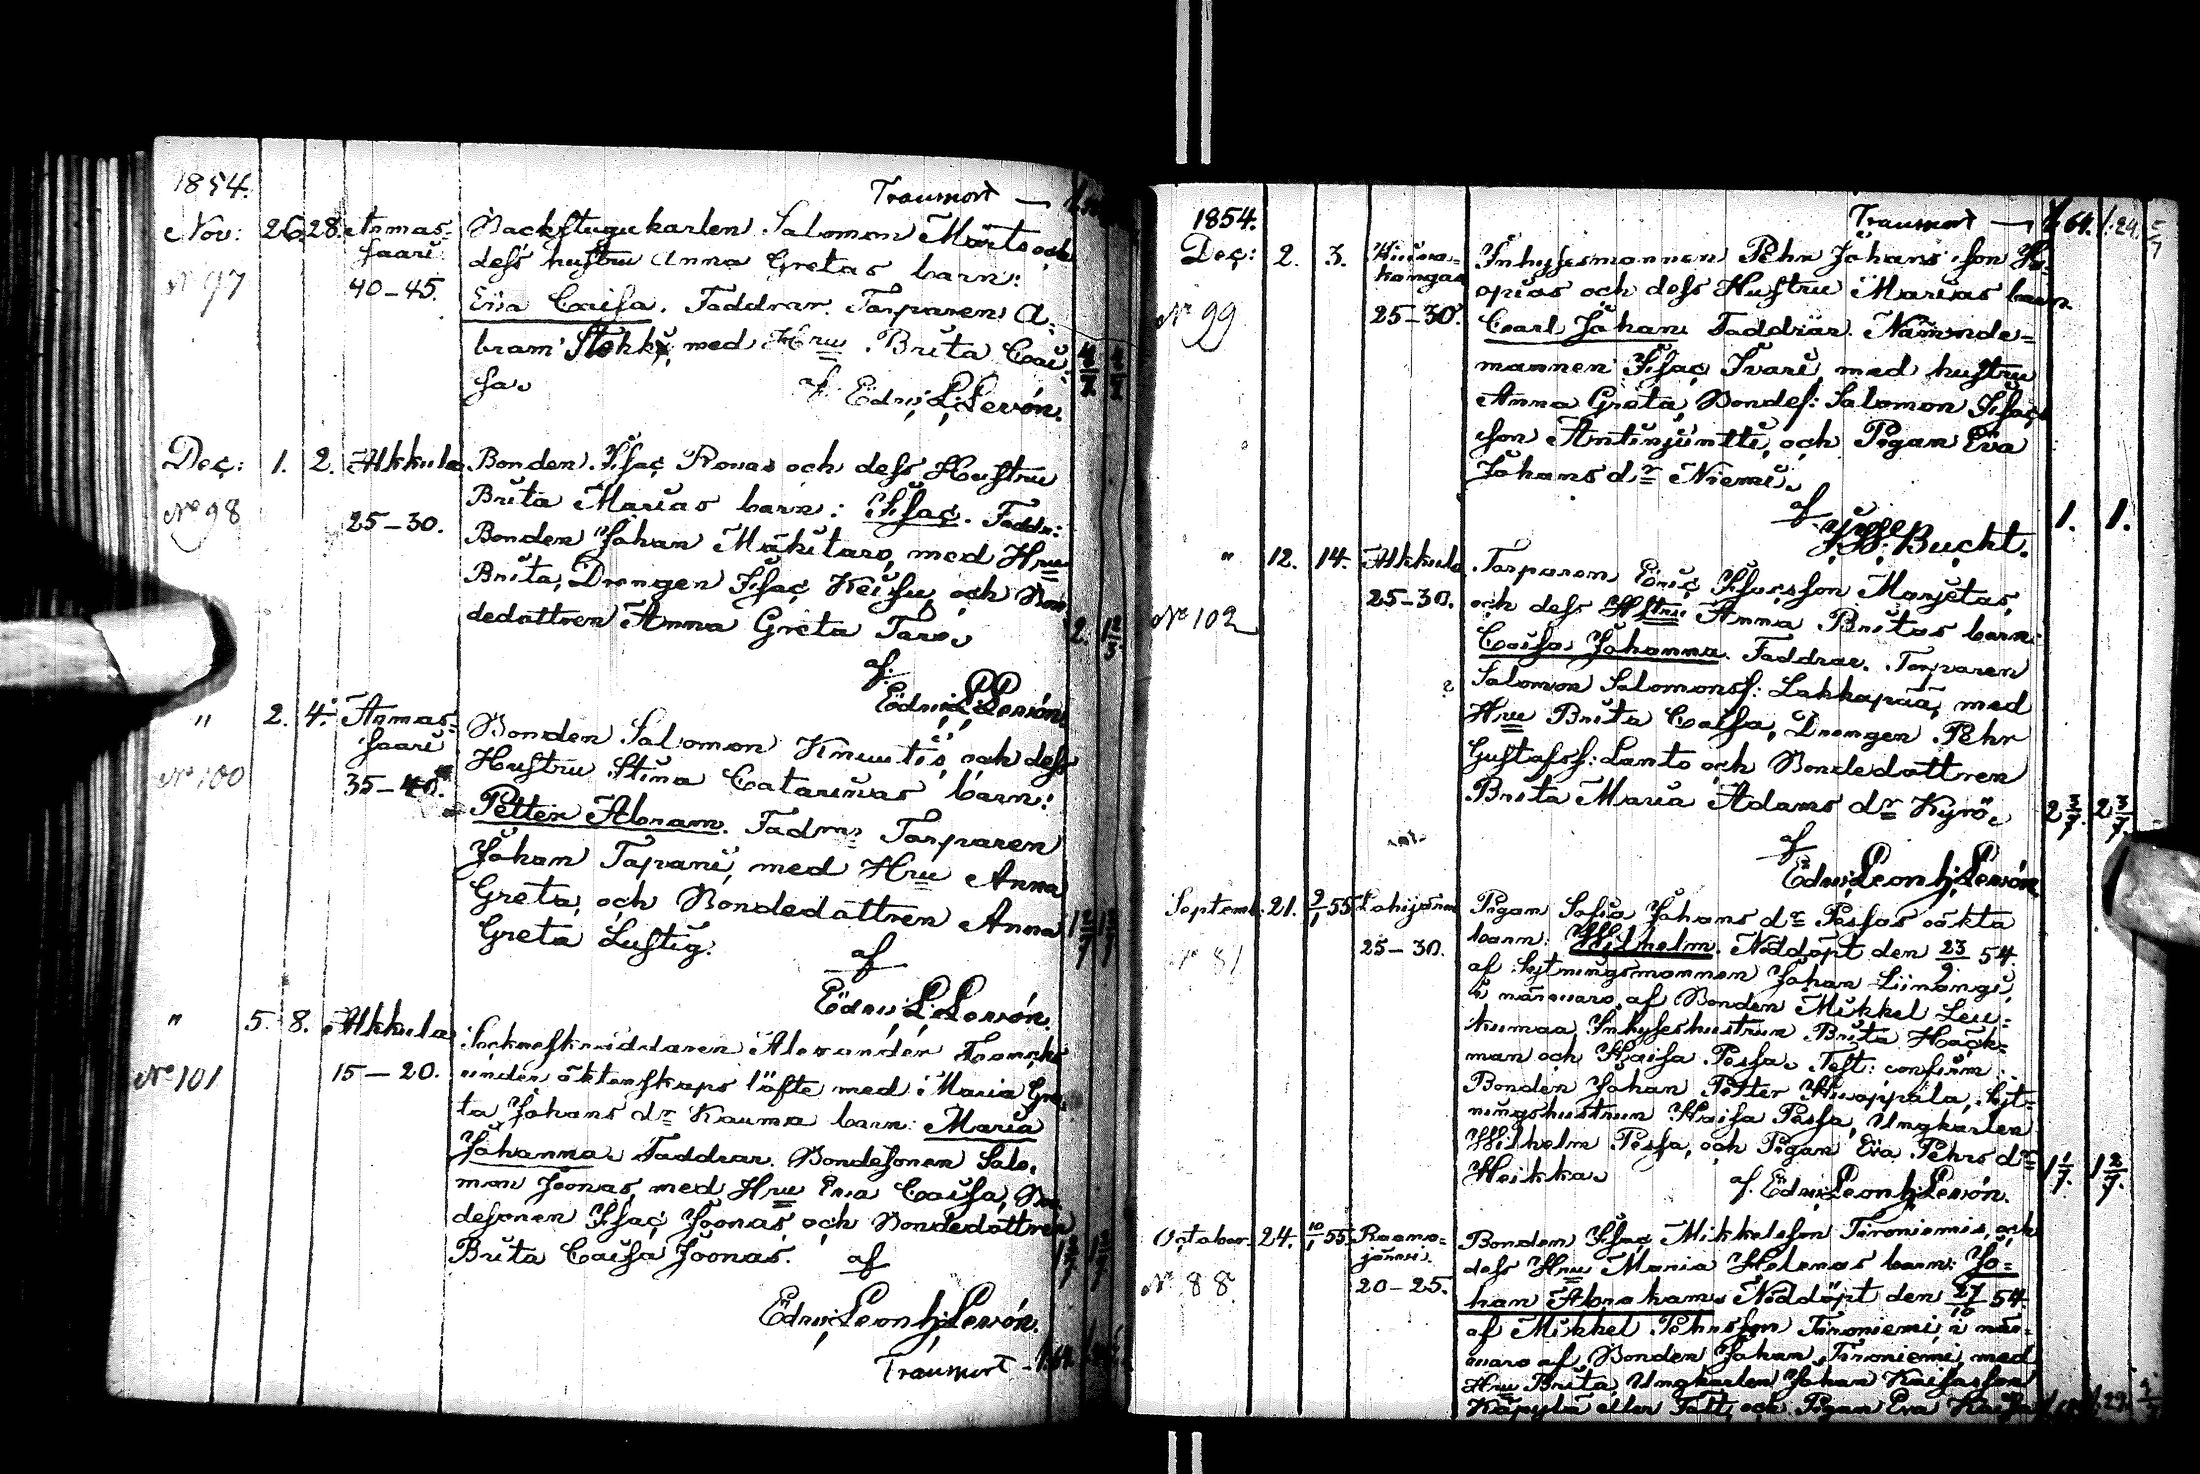 1854.
Transport —
Nov: 26. 28. Armas-
saari
Backstugukarlen Salomon Märts och
dess hustru Anna Gretas barn:
No 97
40–45.
Eva Caisa. Faddrar. Torparen A-
bram Stokki, med Hru Brita Cai-
sa.
af Edv: L. Levón.
Dec: 1. 2. Alkkula
Bonden Isac Rovas och dess Hustru
Brita Marias barn: Isac. Faddr:
No 98
25–30.
Bonden Johan Mäkitaro, med Hru
Brita, Drengen Isac Keisu, och Bon-
dedottren Anna Greta Taro.
2.
af
Edv: L. Levón
" 2. 4. Armas-
saari
Bonden Salomon Knuutis, och dess
Hustru Stina Catarinas barn:
No 100
35–40.
Petter Abram. Fadrr Torparen
Johan Tapani, med Hru Anna
Greta, och Bondedottren Anna
Greta Lustig.
af
Edv: L. Levón.
" 5. 8. Alkkula
Sockneskräddaren Alexander
under äktenskaps löfte med Maria Gre-
No 101
15–20.
ta Johans dr Kauma barn: Maria
Johanna. Faddrar. Bondesonen Salo-
mon Joonas, med Hru Eva Caisa, Bon-
desonen Isac Joonas, och Bondedottren
Brita Caisa Joonas.
af
Edv: Leonh: Levón.
Transport –
1854.
Transport — 164. 124. 5/7
Dec: 2. 3.
kangas
Inhysesmannen Pehr Johans son Ko-
opias och dess Hustru Marias barn
No 99
25–30.
Carl Johan Faddrar. Nämnde-
mannen Isac Ivari med hustru
Anna Greta, Bondes: Salomon Isacs
son Antinjuntti, och Pigan Eva
Johans dr Niemi.
af
Bucht.
1. 1.
" 12. 14. Alkkula
Torparen Eric Isacsson Marjetas,
och dess Hstru Anna Britas barn:
No 102
25–30.
Caisa Johanna. Faddrar. Torparen
Salomon Salomonss: Lakkapää, med
Hru Brita Caisa, Drengen Pehr
Gustafss: Lanto och Bondedottren
Brita Maria Adams dr Kyrö.
2 3/7. 2 3/7.
af
Edv: Leonh: Levón
Septemb. 21. 9/1 55.
Pigan Sofia Johans dr Pessas oäkta
barn: Wilhelm. Nöddöpt den 23/9 54.
No 81
25–30.
af Sytningsmannen Johan Liinangi,
i närvaro af Bonden Mikkel Leu-
kumaa, Inhyseshustrun Brita Häck-
man och Kaisa Pessa. Test: confirm:
Bonden Johan Petter Huuppala, Syt-
ningshustrun Kaisa Pessa, Ungkarlen
Wilhelm Pessa, och Pigan Eva Pehrs dr
Heikka.
af Edv: Leonh: Levón.
October. 24. 10/1 55. Raano-
järvi.
Bonden Isac Mikkelsson Tironiemis, och
dess Hru Maria Helenas barn: Jo-
No 88.
20–25.
han Abraham. Nöddöpt den 27/10 54.
af Mikkel Pehrsson Tironiemi, i när-
varo af Bonden Johan Tironiemi, med
Hru Brita, Ungkarlen Johan Kaisasson
Käpylä eller Falt, och Pigan Eva Kaisa